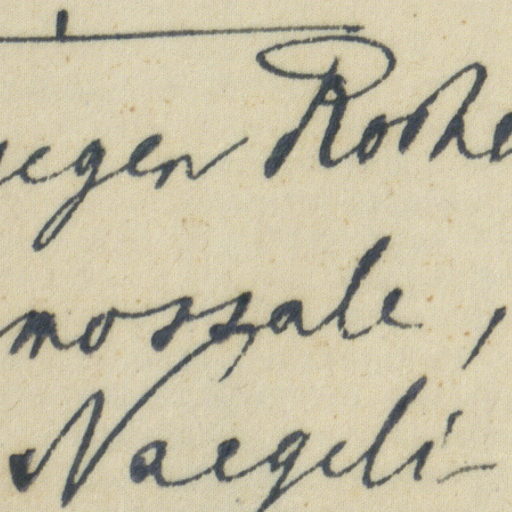 gegen Rothe
mossale,
Naegeli-